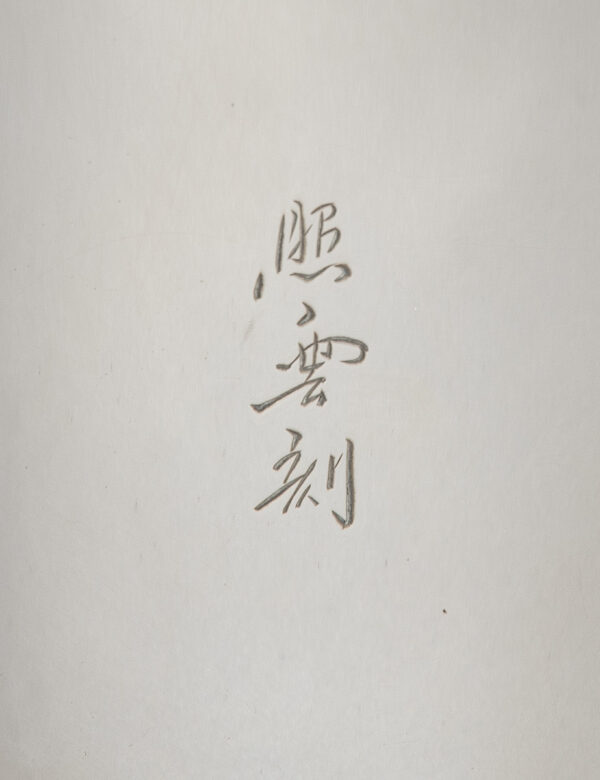 照雲刻